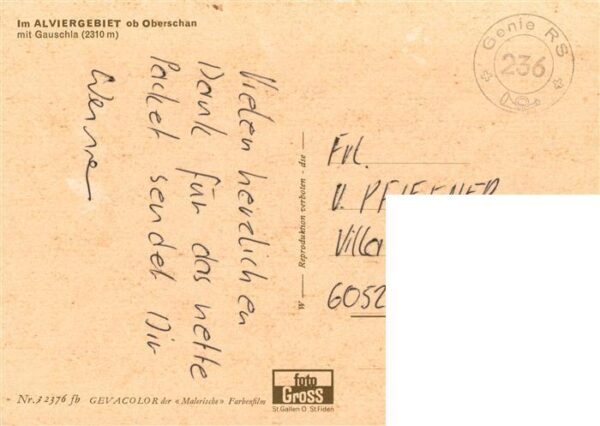 Im ALVIERGEBIET ob Oberschan
mit Gauschla (2310 m)
Genie RS
236
Vielen herzlichen
Dank für das nette
Packet sendet Dir
Werner
W — Reproduktion verboten - dse —
Frl.
V. PFIFFNER
Villa
6052
foto
GROSS
St.Gallen O St.Fiden
Nr. J 2376 fb GEVACOLOR der «Malerische» Farbenfilm